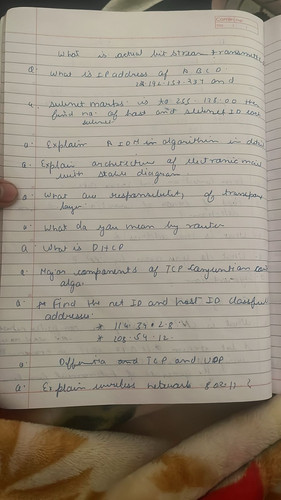 What is actual bit stream transmitted
Q. What is IP address of A B C D
and
Q. Subnet mask is 255 . 128 . 0.0 then
find no. of host and subnet ID
subnet
Q. Explain algorithm in detail
Q. Explain architecture of electronic mail
with diagram.
Q. What are responsibility of transport
layer
Q. What do you mean by router
Q. What is DHCP
Q. Major components of TCP congestion con
algo.
Q. Find the net ID and host ID classful
addresses.
* 114.34.2.8
* 208.54.12.
Q. Difference TCP and UDP
Q. Explain wireless network 802.11